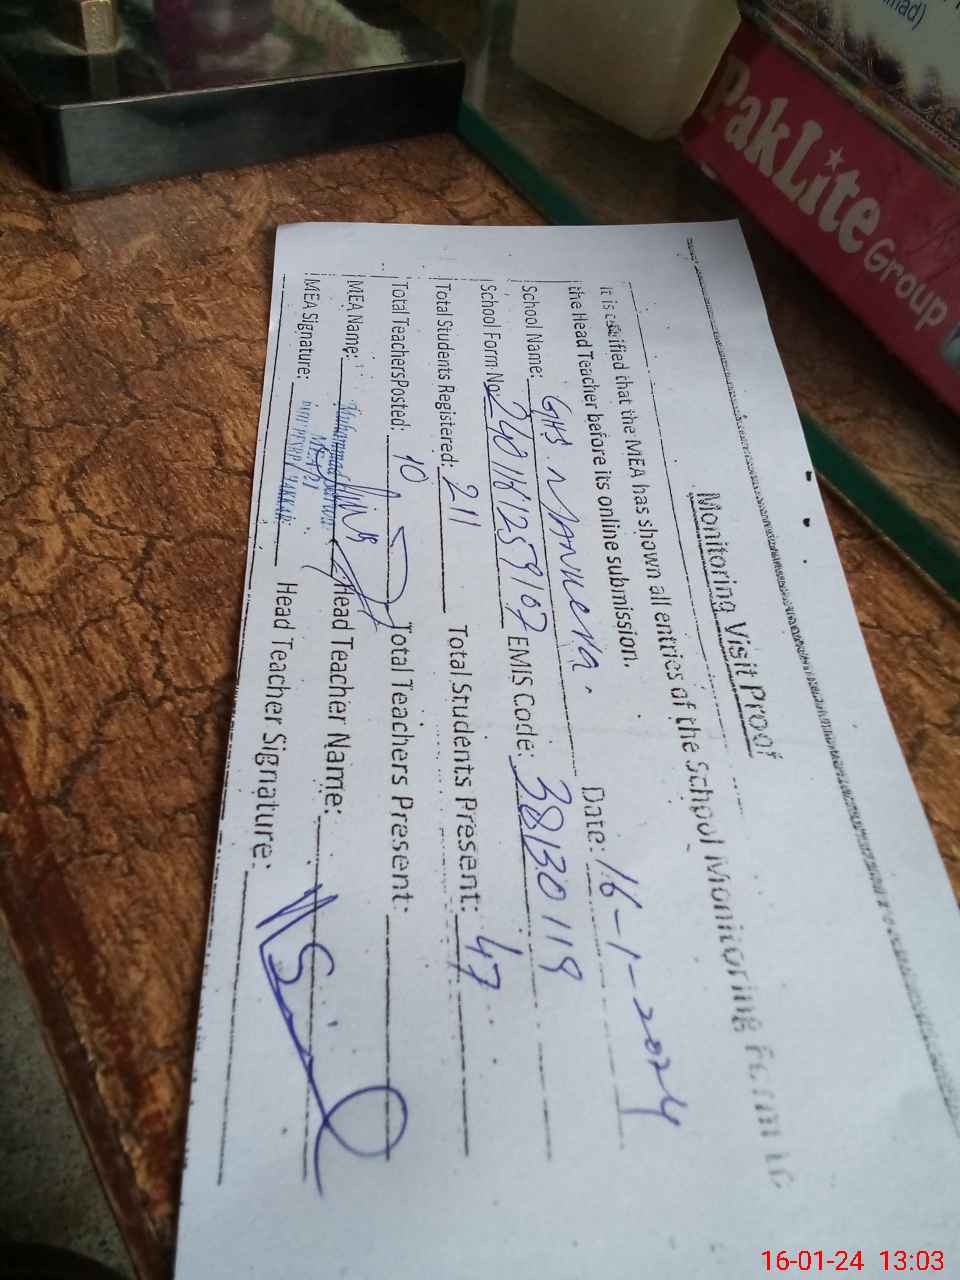 mad)
PakLite
Group
Monitoring Visit Proof
It is certified that the MEA has shown all entries of the School Monitoring Form to
the Head Teacher before its online submission.
School Name: GHS Date: 16-1-2024
School Form No. EMIS Code: 38130119
Total Students Registered: 211 Total Students Present: 47
Total Teachers Posted: 10 Total Teachers Present:
MEA Name: Muhammad Head Teacher Name:
MEA Signature: Head Teacher Signature:
16-01-24 13:03